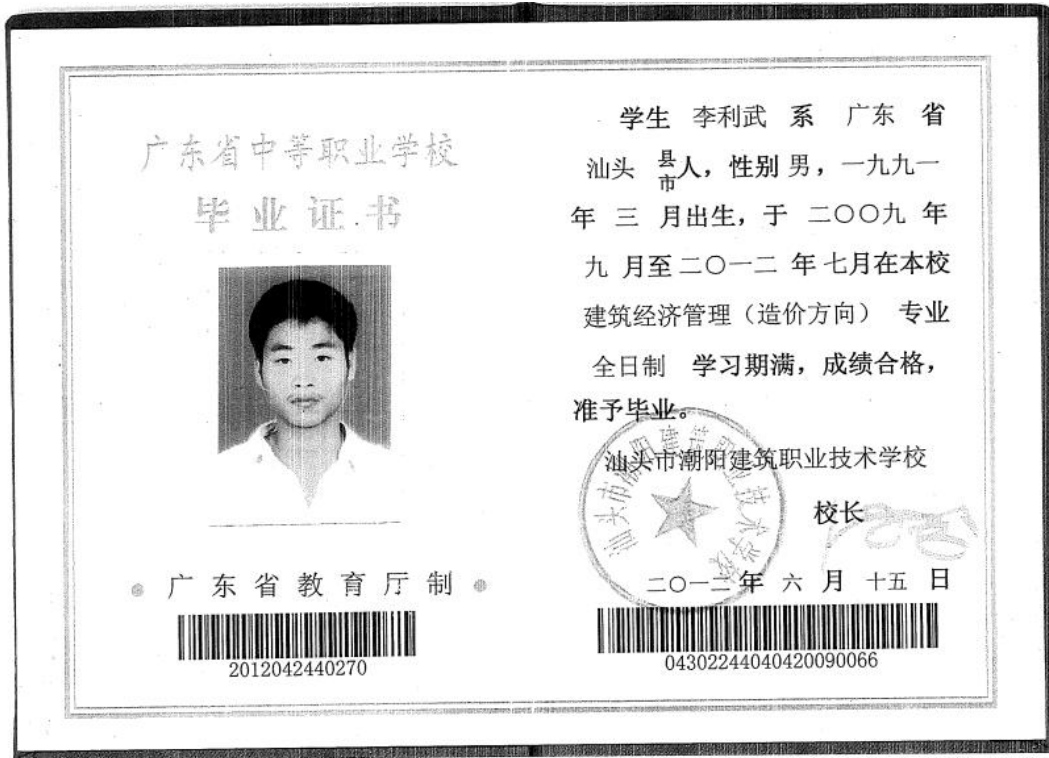 广东省中等职业学校
毕业证书
广东省教育厅制
2012042440270
学生 李利武 系 广东 省
汕头 县市人，性别 男，一九九一
年 三 月出生，于 二〇〇九 年
九 月至 二〇一二 年 七月在本校
建筑经济管理（造价方向） 专业
全日制 学习期满，成绩合格，
准予毕业。
汕头市潮阳建筑职业技术学校
汕头市潮阳建筑职业技术学校
校长
二〇一二 年 六 月 十五 日
04302244040420090066